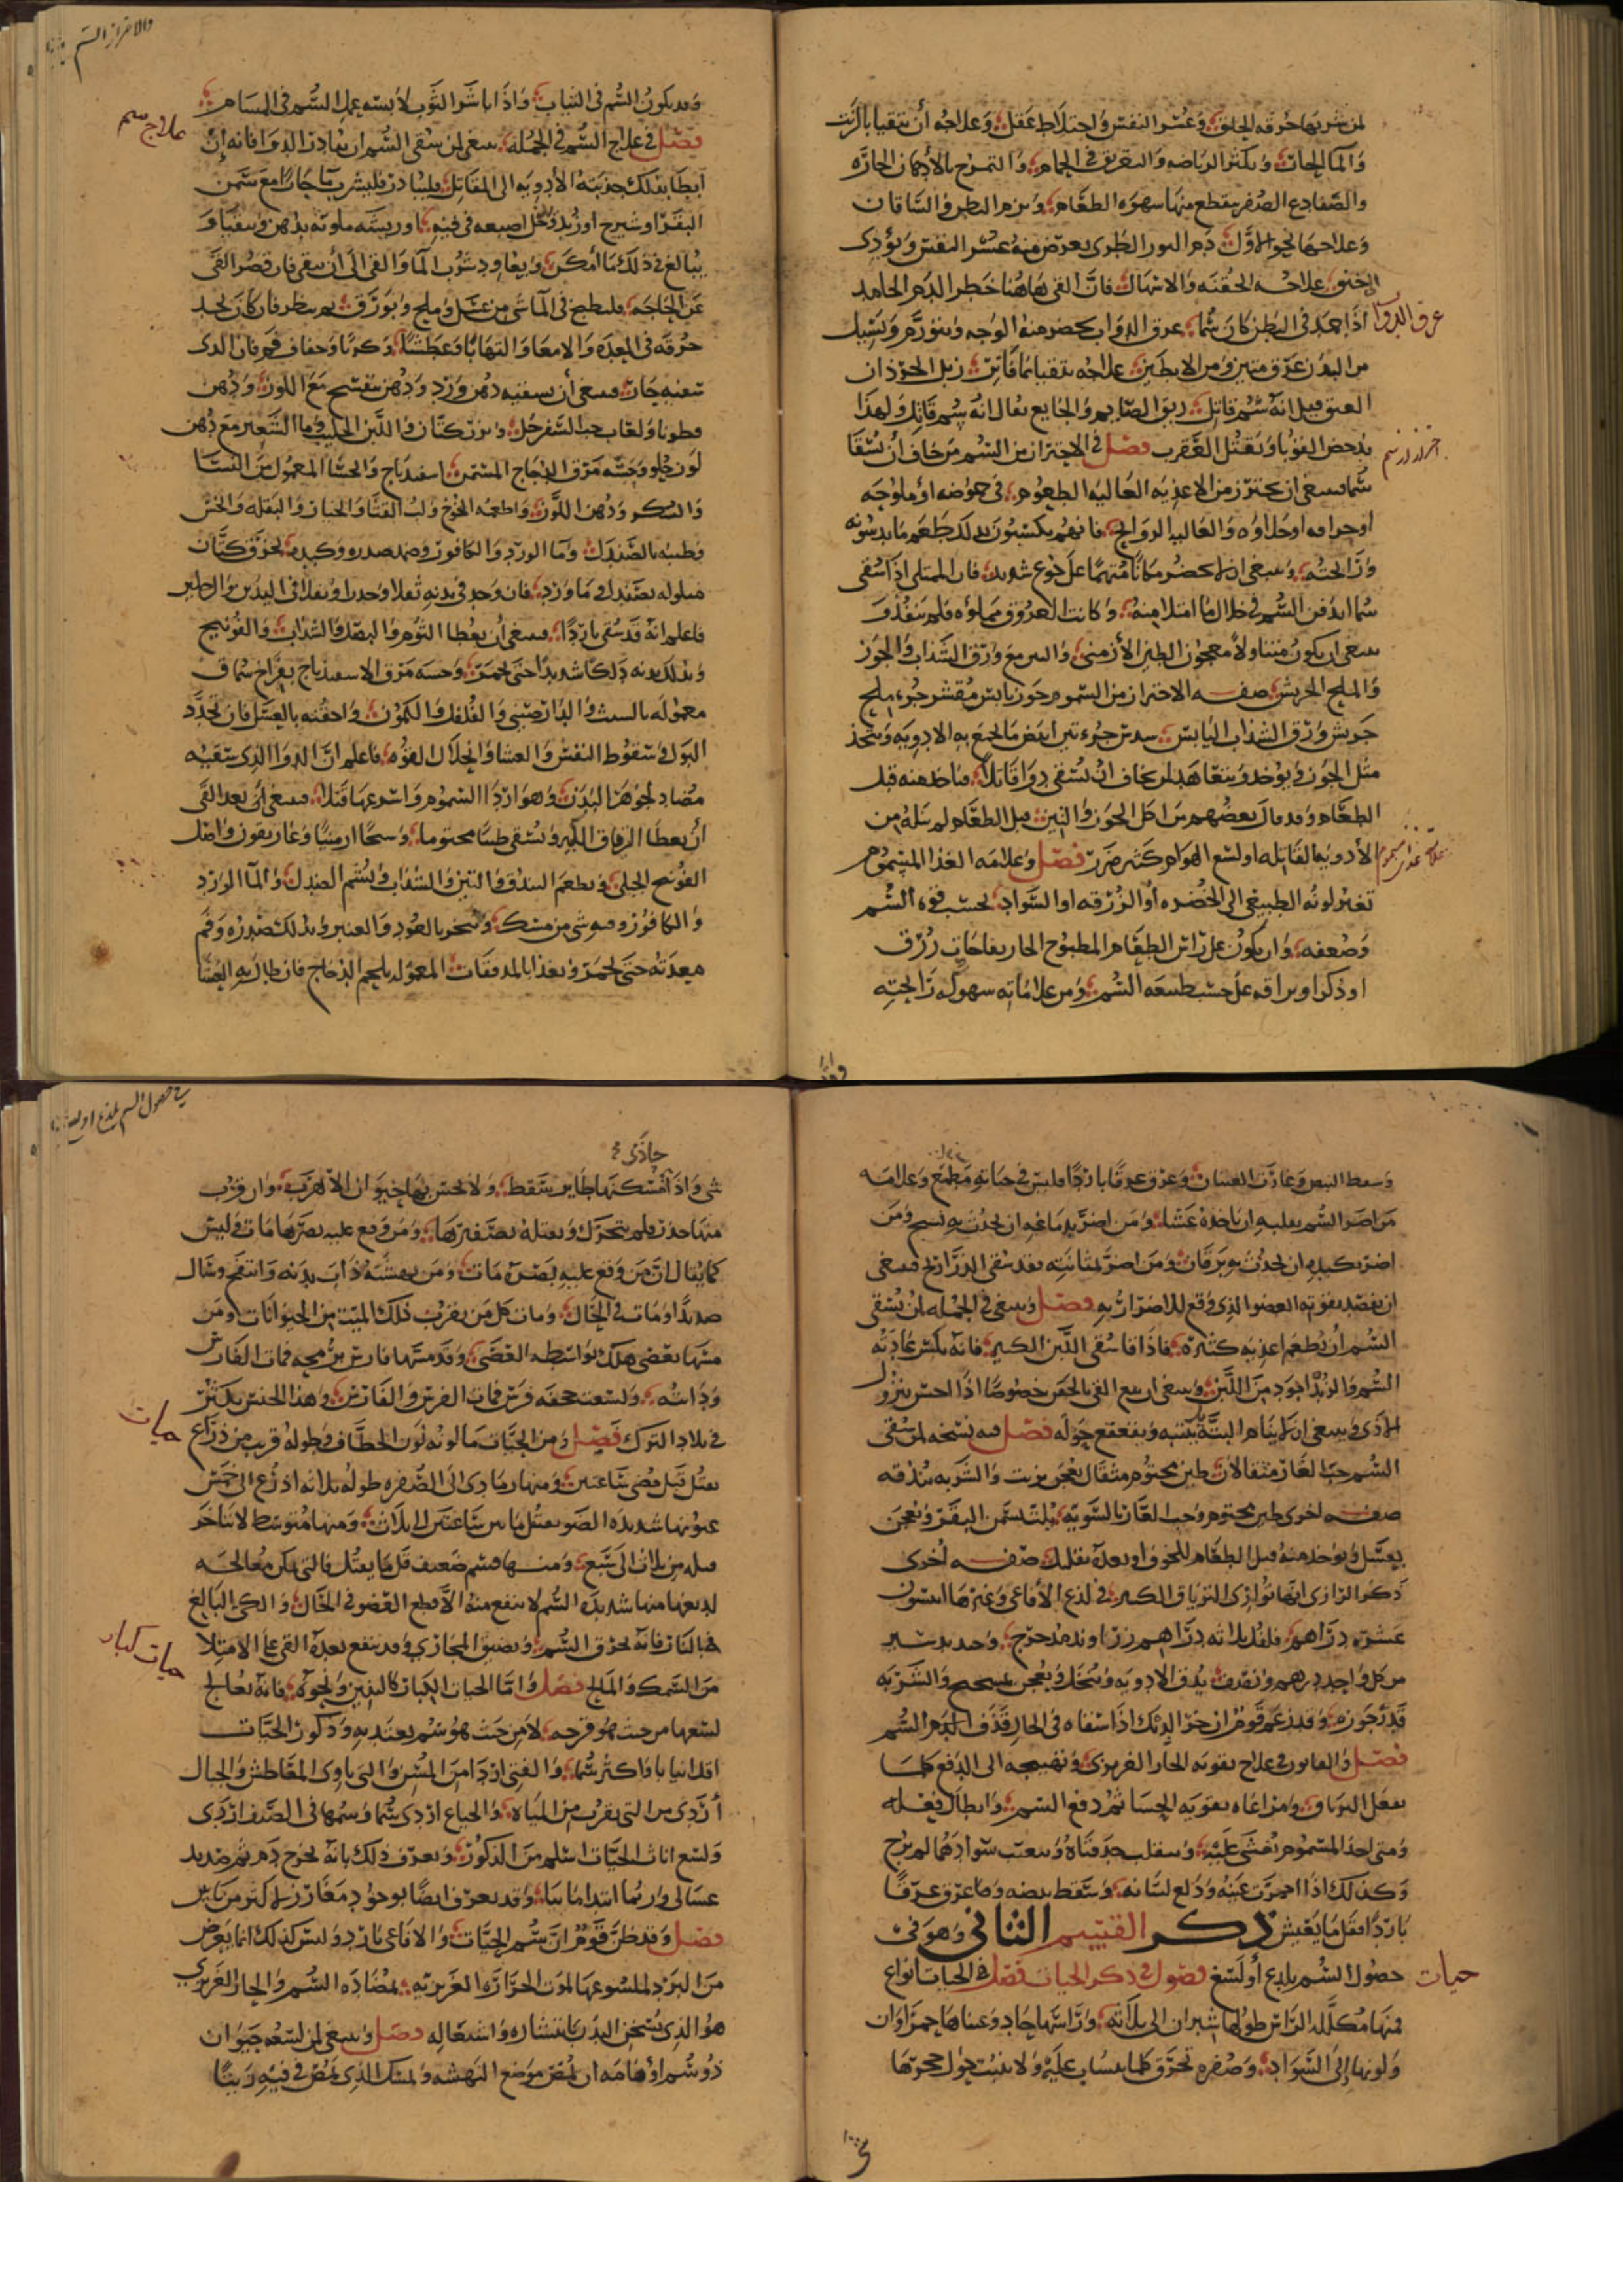 لمن شربها حرقه الحلق وعسر النفس واختلاط عقل وعلاجه أن يتقيا بالزيت
والما الحار ويكثر الرياضه والتعريق في الحمام والتمرخ بالأدهان الحاره
والضفادع الصفر يقطع منها شهوه الطعام ويرم البطن والساقان
وعلاجها نحو الاول دم الثور الطرى يعرض منه عسر النفس ويؤدى
الخنق علاجه الحقنه والاسهال فان القى هاهنا خطر الدم الجامد
اذا جمد في البطن كان سما عرق الدواب يخضر منه الوجه ويتورم ويسيل
عرق الدواب
من البدن عرق منتن ومن الابطين علاجه يتقيا بما فاتر زبل الجرذان
العتق قيل انه سم قاتل ريق الصايم والجايع يقال انه سم قاتل ولهذا
يدحض القوبا ويقتل العقرب فصل في الاحتراز من السم من خاف أن يسقا
سما فينبغى ان يحترز من الاغذيه الغالبه الطعوم في حموضه او ملوحه
او حرافه او حلاوه والغالبه الروايح فانهم يكسبون بذلك طعم ما يدسونه
ورائحته وينبغى ان لا يحضر مكانا متهما على جوع شديد فان الممتلى اذا سقى
سما اندفن السم في خلال ما امتلا منه وكانت العروق مملوءه فلم ينفذ و
ينبغى ان يكون متناولا معجون الطين الأرمنى والتين مع ورق السذاب والجوز
والملح الجريش صفه الاحتراز من السموم جوز يابس مقشر جزء ملح
جريش ورق السذاب اليابس سدس جزء تين ابيض ما يجمع به الادويه ويتخذ
مثل الجوز ويؤخذ ويتعاهد لمن يخاف ان يسقى دوا قاتلا فياخذ منه قبل
الطعام وقد قال بعضهم من اكل الجوز والتين قبل الطعام لم ينله من
الأدويه القاتله او لسع الهوام كثير ضرر فصل وعلامه الغذا المسموم
تغير لونه الطبيعى الى الخضره أو الزرقه او السواد بحسب قوه السم
وضعفه وان يكون على راس الطعام المطبوخ الحار نفاخات زرق
او ذكرا وبراقه على حسب طبيعه السم ومن علاماته سهوكه رائحته
وقد يكون السم في الثياب واذا باشر الثوب لابسه عمل السم في المسام
علاج سم
فصل في علاج السم في الجمله ينبغى لمن سقى السم ان يبادر الدوا فانه إن
أبطا بذلك جذبته الأدويه الى المقاتل فليبادر فليشرب ما حارا مع سمن
البقر او شيرج او زبد ويدخل اصبعه في فيه او ريشه ملوثه بدهن ويتقيا و
يبالغ في ذلك ما أمكن ويعاود شرب الما والقى الى أن ينقى فان قصر القى
عن الحاجه فليطبخ في الما شى من عسل وملح وبورق ثم ينظر فان كان يجد
حرقه في المعده والامعا والتهابا وعطشا وكربا وجفاف فم فان الذى
سقيه حار فينبغى أن يسقيه دهن ورد ودهن بنفسج مع اللوز ودهن
قطونا ولعاب حب السفرجل وبزر كتان واللبن الحليب وما الشعير مع دهن
لوز حلو وحسه مرق الدجاج المسمن اسفيدباج والحسا المعمول من النشا
والسكر ودهن اللوز واطعمه الخوخ ولب القثا والخيار والبقله والخس
وطيبه بالصندل وما الورد والكافور وضمد صدره وكبده بخرق كتان
مبلوله بصندل وما ورد فان وجد في بدنه ثقلا وخدرا وثقلا في اليدين والرجلين
فاعلم انه قد سقى باردا فينبغى أن يعطا الثوم والبصل والسذاب والفوتنج
ويدلك بدنه دلكا شديدا حتى يحمر وحسه مرق الاسفيدباج بفراخ سمان
معموله بالشبث والدارصينى والفلفل والكمون واحقنه بالعسل فان تجدد
البول وسقوط النفس والغشا وانحلال القوه فاعلم ان الدوا الذى سقيه
مضاد لجوهر البدن وهو اردا السموم واسرعها قتلا فينبغى أن بعد القى
أن يعطا الترياق الكبير ويسقى طينا مختوما وسحا ارمنيا وغاريقون واصل
الفوتنج الجبلى ويطعم البندق والتين والسذاب ويشمم الصندل والما الورد
والكافور وشى من مسك ويبخر بالعود والعنبر ويدلك صدره وفم
معدته حتى يحمر ويغذا بالمدققات المعموله بلحم الدجاج فان طال به الغشا
وسقط النبض وغارت العينان وعرق عرقا باردا فليس في حياته مطمع وعلامه
من اضر السم بقلبه ان ياخذه غشا ومن اضر بدماغه ان يحدث به تشنج ومن
اضر بكبده ان يحدث به يرقان ومن اضر بمثانته فقد سقى الذراريح فينبغى
ان يقصد بقوته العضو الذى وقع للاضرار به فصل وينبغى في الجمله لمن يسقى
السم ان يطعم اغذيه كثيره فاذا ما سقى اللبن الكثير فانه يكسر عاديه
السم والزبد اجود من اللبن وينبغى ان يتبع القى بالحقن خصوصا اذا احس بنزول
الاذى وينبغى ان لا ينام البته بل ينبه ويقعقع حوله فصل فيه نسخه لمن سقى
السم حب الغار مثقالان طين مختوم مثقال يعجن بزيت والشربه بندقه
صفه اخرى طين مختوم وحب الغار بالسويه يلت بسمن البقر ويعجن
بعسل ويوخذ منه قبل الطعام للخوف او بعده بقليل صفه أخرى
ذكر الرازى انها توازى الترياق الكبير في لدغ الأفاعى وغيرها انيسون
عشره دراهم فلفل ثلاثه دراهم زراوند مدحرج وجندبيدستر
من كل واحد درهم ونصف يدق الادويه وينخل ويعجن بميبختج والشربه
قدر جوزه وقد زعم قوم ان خر الديك اذا سقاه في الحال قذف الدم السم
فصل والقانون في علاج تقويه الحار الغريزى وتهييجه الى الدفع كما
يفعل الترياق ومراعاه تقويه الحسا ثم دفع السم وابطال فعله
ومتى اخذ المسموم يغشى عليه وينقلب حدقتاه ويغيب سوادهما لم يرج
وكذلك اذا احمرت عينه ودلع لسانه وسقط نبضه وما عرق عرقا
باردا فقل ما يعيش ذكر القسم الثانى وهو في
حصول السم بلدغ أو لسع فصول في ذكر الحيات فصل في الحيات انواع
حيات
فمنها مكلله الراس طولها شبران الى ثلاثه وراسها حاد وعيناها حمراوان
ولونها إلى السواد وصفره تحرق كلما ينساب عليه ولا ينبت حول جحرها
شى واذا مسكنها طاير سقط ولا يحس بها حيوان الا هرب وان قرب
حاذى
منها خدر فلم يتحرك ويقتله بصفيرها ومن وقع عليه بصرها مات وليس
كما يقال ان من وقع عليه بصره مات ومن نهشته ذاب بدنه وانتفخ وسال
صديدا ومات في الحال ومات كل من يقرب ذلك الميت من الحيوانات ومن
مسها بعضى هلك بواسطه العصى وقد مسها فارس برمحه فمات الفارس
ودابته ولسعت جحفله فرس فمات الفرس والفارس وهذا الجنس يكثر
في بلاد الترك فصل ومن الحيات ما لونه لون الخطاف وطوله قريب من ذراع
حيات
يقتل قبل مضى ساعتين ومنها رمادى الى الصفره طوله ثلاثه اذرع الى خمس
عيونها شديده الضو يقتل ما بين ساعتين الى ثلاث ومنها متوسط لا يتاخر
قتله من ثلاث الى سبع ومنها قسم ضعيف قل ما يقتل فالتى يمكن معالجه
لديغها منها شديده السم لا ينفع منه الا قطع العضو في الحال والكى البالغ
بالنار فانه يحرق السم ويضيق المجارى وقد ينفع بعده القى على الامتلا
حيات كبار
من السمك والمالح فصل واما الحيات الكبار كالتنين ونحوه فانه يعالج
لسعها من حيث هو قرحه لا من حيث هو سم يعتد به وذكور الحيات
اقل انيابا واكثر سما والفتى اردا من المسن والتى ياوى المعاطش والجبال
أردى من التى يقرب من المياه والجياع اردى سما وسمها في الصيف اردى
ولسع اناث الحيات اسلم من الذكور ويعرف ذلك بانه يخرج دم ثم صديد
غسالى وربما ابتدا مايا وقد يعرف ايضا بوجود مغارز اكثر من نابين
فصل وقد ظن قوم ان سم الحيات والافاعى بارد وليس كذلك انما يعرض
من البرد لملسوعها لموت الحراره الغريزيه بمضاده السم والحار الغريزى
هو الذى يسخن البدن بانتشاره واشتعاله فصل وينبغى لمن لسعه حيوان
ذو سم او هامه ان يمص موضع النهشه ويمسك الذى يمص في فيه زيتا